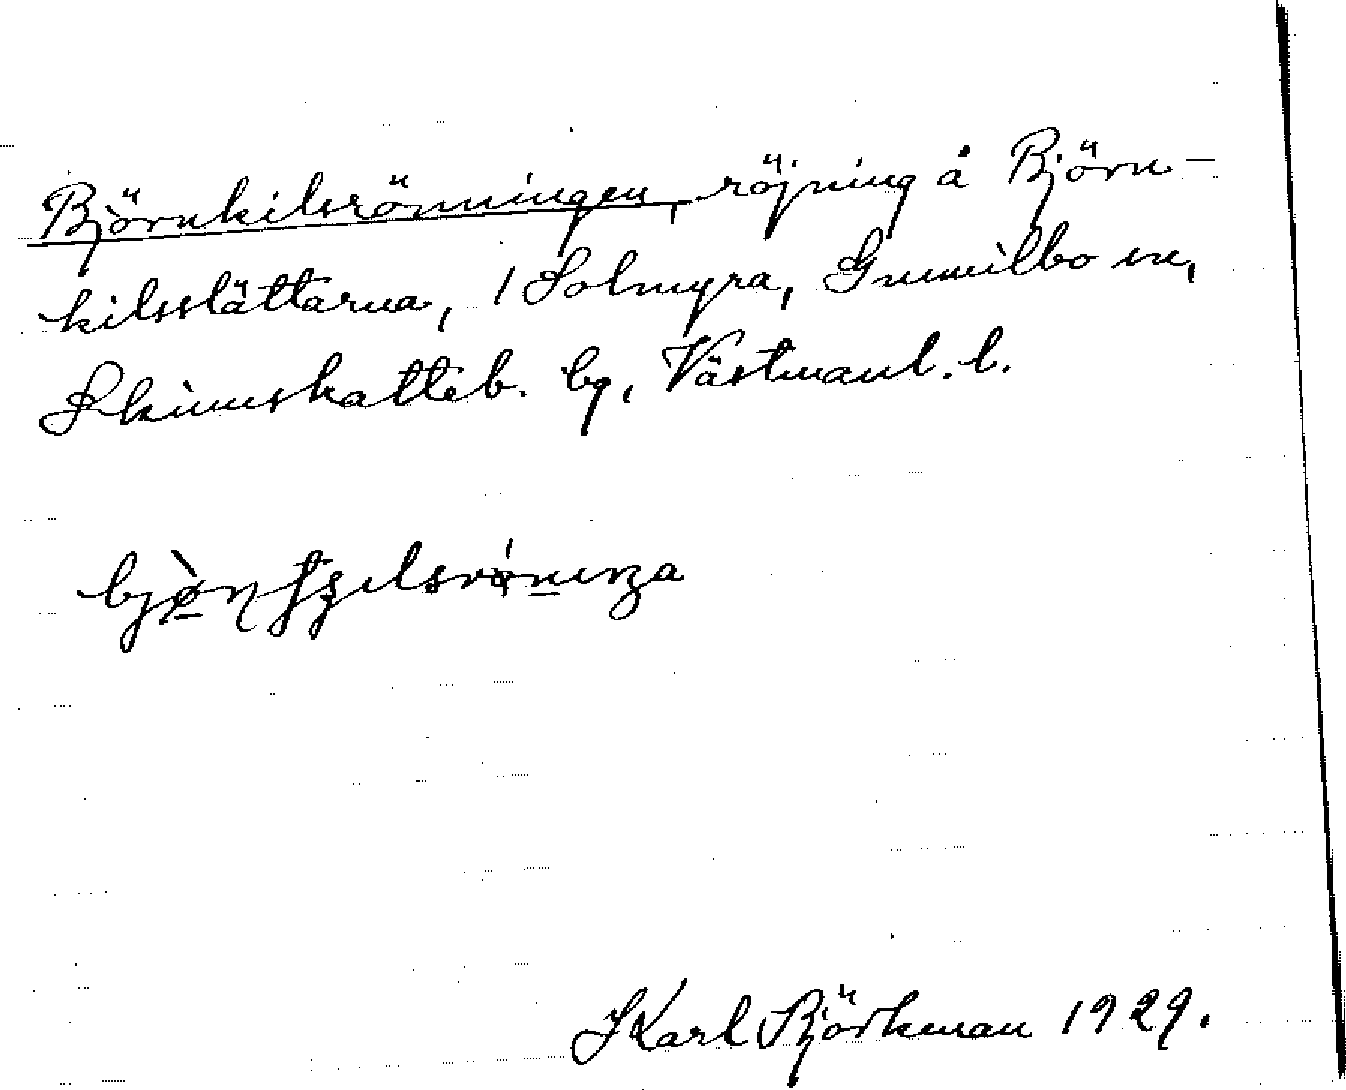 Björnkilsrönningen, röjning å Björn-
kilsslättarna, 1 Solmyra, Gunnilbo sn,
Skinnskatteb. bg, Västmanl. l.
Karl Björkman 1929.